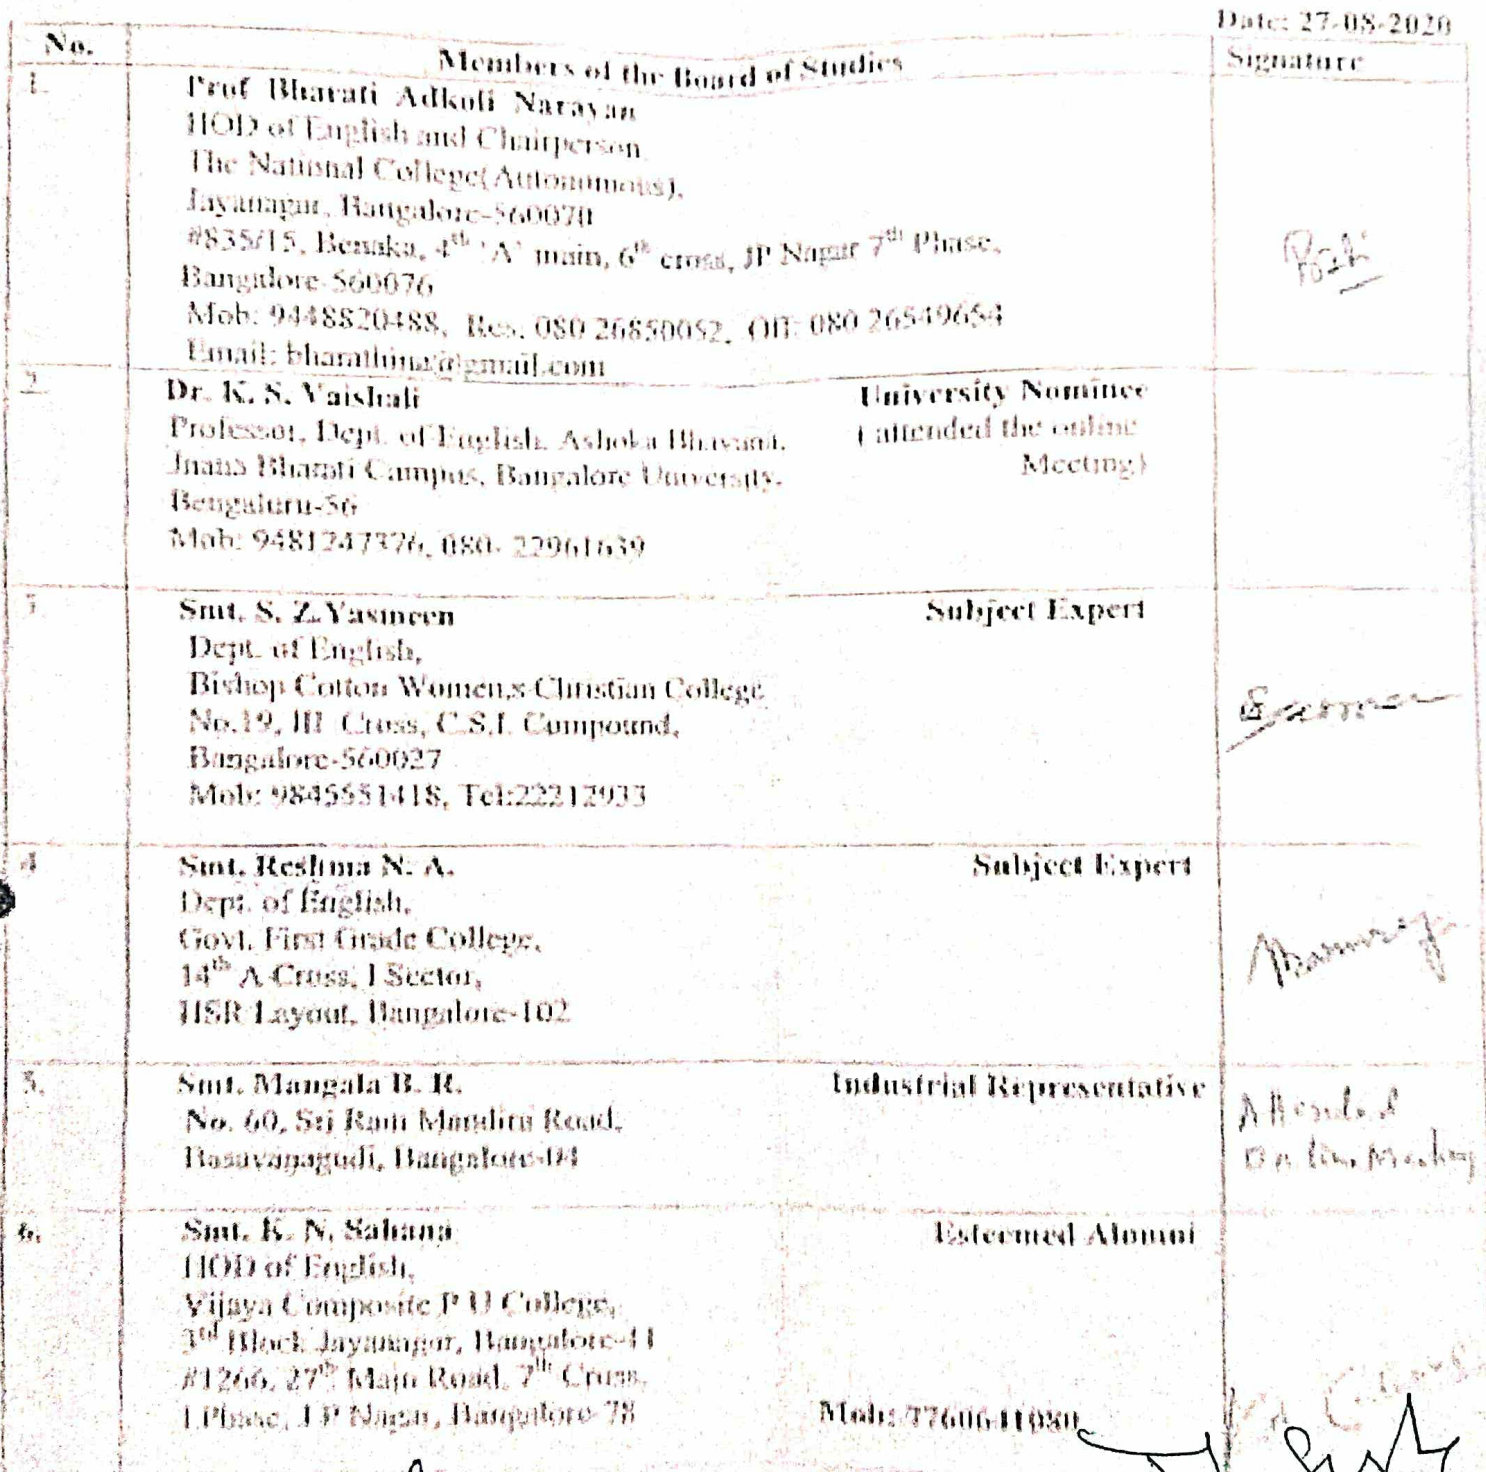 Date: 27-08-2020
No. Members of the Board of Studies Signature
1. Prof Bharati Adkoli Narayan
HOD of English and Chairperson
The National College(Autonomous),
Jayanagar, Bangalore-560070
#835/15, Benaka, 4th 'A' main, 6th cross, JP Nagar 7th Phase,
Bangalore-560076
Mob: 9448820488, Res. 080 26850052, Off: 080 26549654
Email: bharathina@gmail.com
2. Dr. K. S. Vaishali University Nominee
Professor, Dept. of English, Ashoka Bhavana, ( attended the online
Jnana Bharati Campus, Bangalore University, Meeting)
Bengaluru-56
Mob: 9481247376, 080- 22961639
3. Smt. S. Z.Yasmeen Subject Expert
Dept. of English,
Bishop Cotton Women,s Christian College
No.19, III Cross, C.S.I. Compound,
Bangalore-560027
Mob: 9845551418, Tel:22212933
4 Smt. Reshma N. A. Subject Expert
Dept. of English,
Govt. First Grade College,
14th A Cross, I Sector,
HSR Layout, Bangalore-102
5. Smt. Mangala B. R. Industrial Representative
No. 60, Sri Ram Mandira Road,
Basavanagudi, Bangalore-04
Attended
Online Meeting
6. Smt. K. N. Sahana Esteemed Alumni
HOD of English,
Vijaya Composite P U College,
3rd Block Jayanagar, Bangalore-11
#1266, 27th Main Road, 7th Cross,
I Phase, J P Nagar, Bangalore-78 Mob: